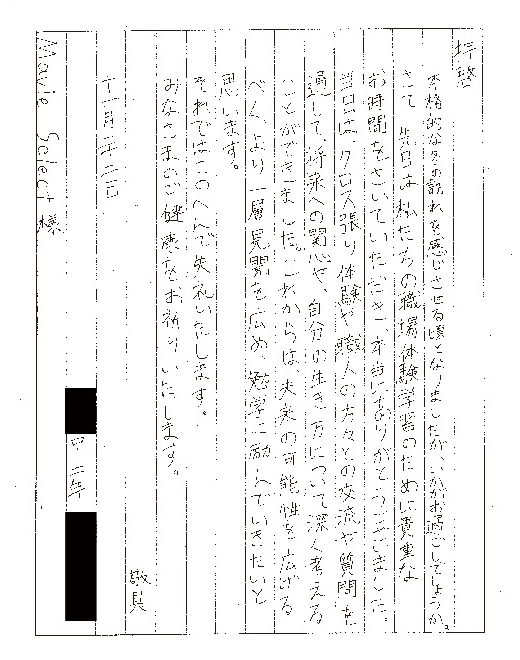 拝啓
本格的な冬の訪れを感じさせる頃となりましたが、いかがお過ごしでしょうか。
さて、先日は私たちの職場体験学習のために貴重な
お時間をさいていただき、本当にありがとうございました。
当日は、クロス張り体験や職人の方々との交流や質問を
通して、将来への関心や、自分の生き方について深く考える
ことができました。これからは、未来の可能性を広げる
べく、より一層見聞を広め、勉学に励んでいきたいと
思います。
それではこのへんで失礼いたします。
みなさまのご健康をお祈りいたします。
敬具
十一月二十二日
中二年
Mavie Select 様